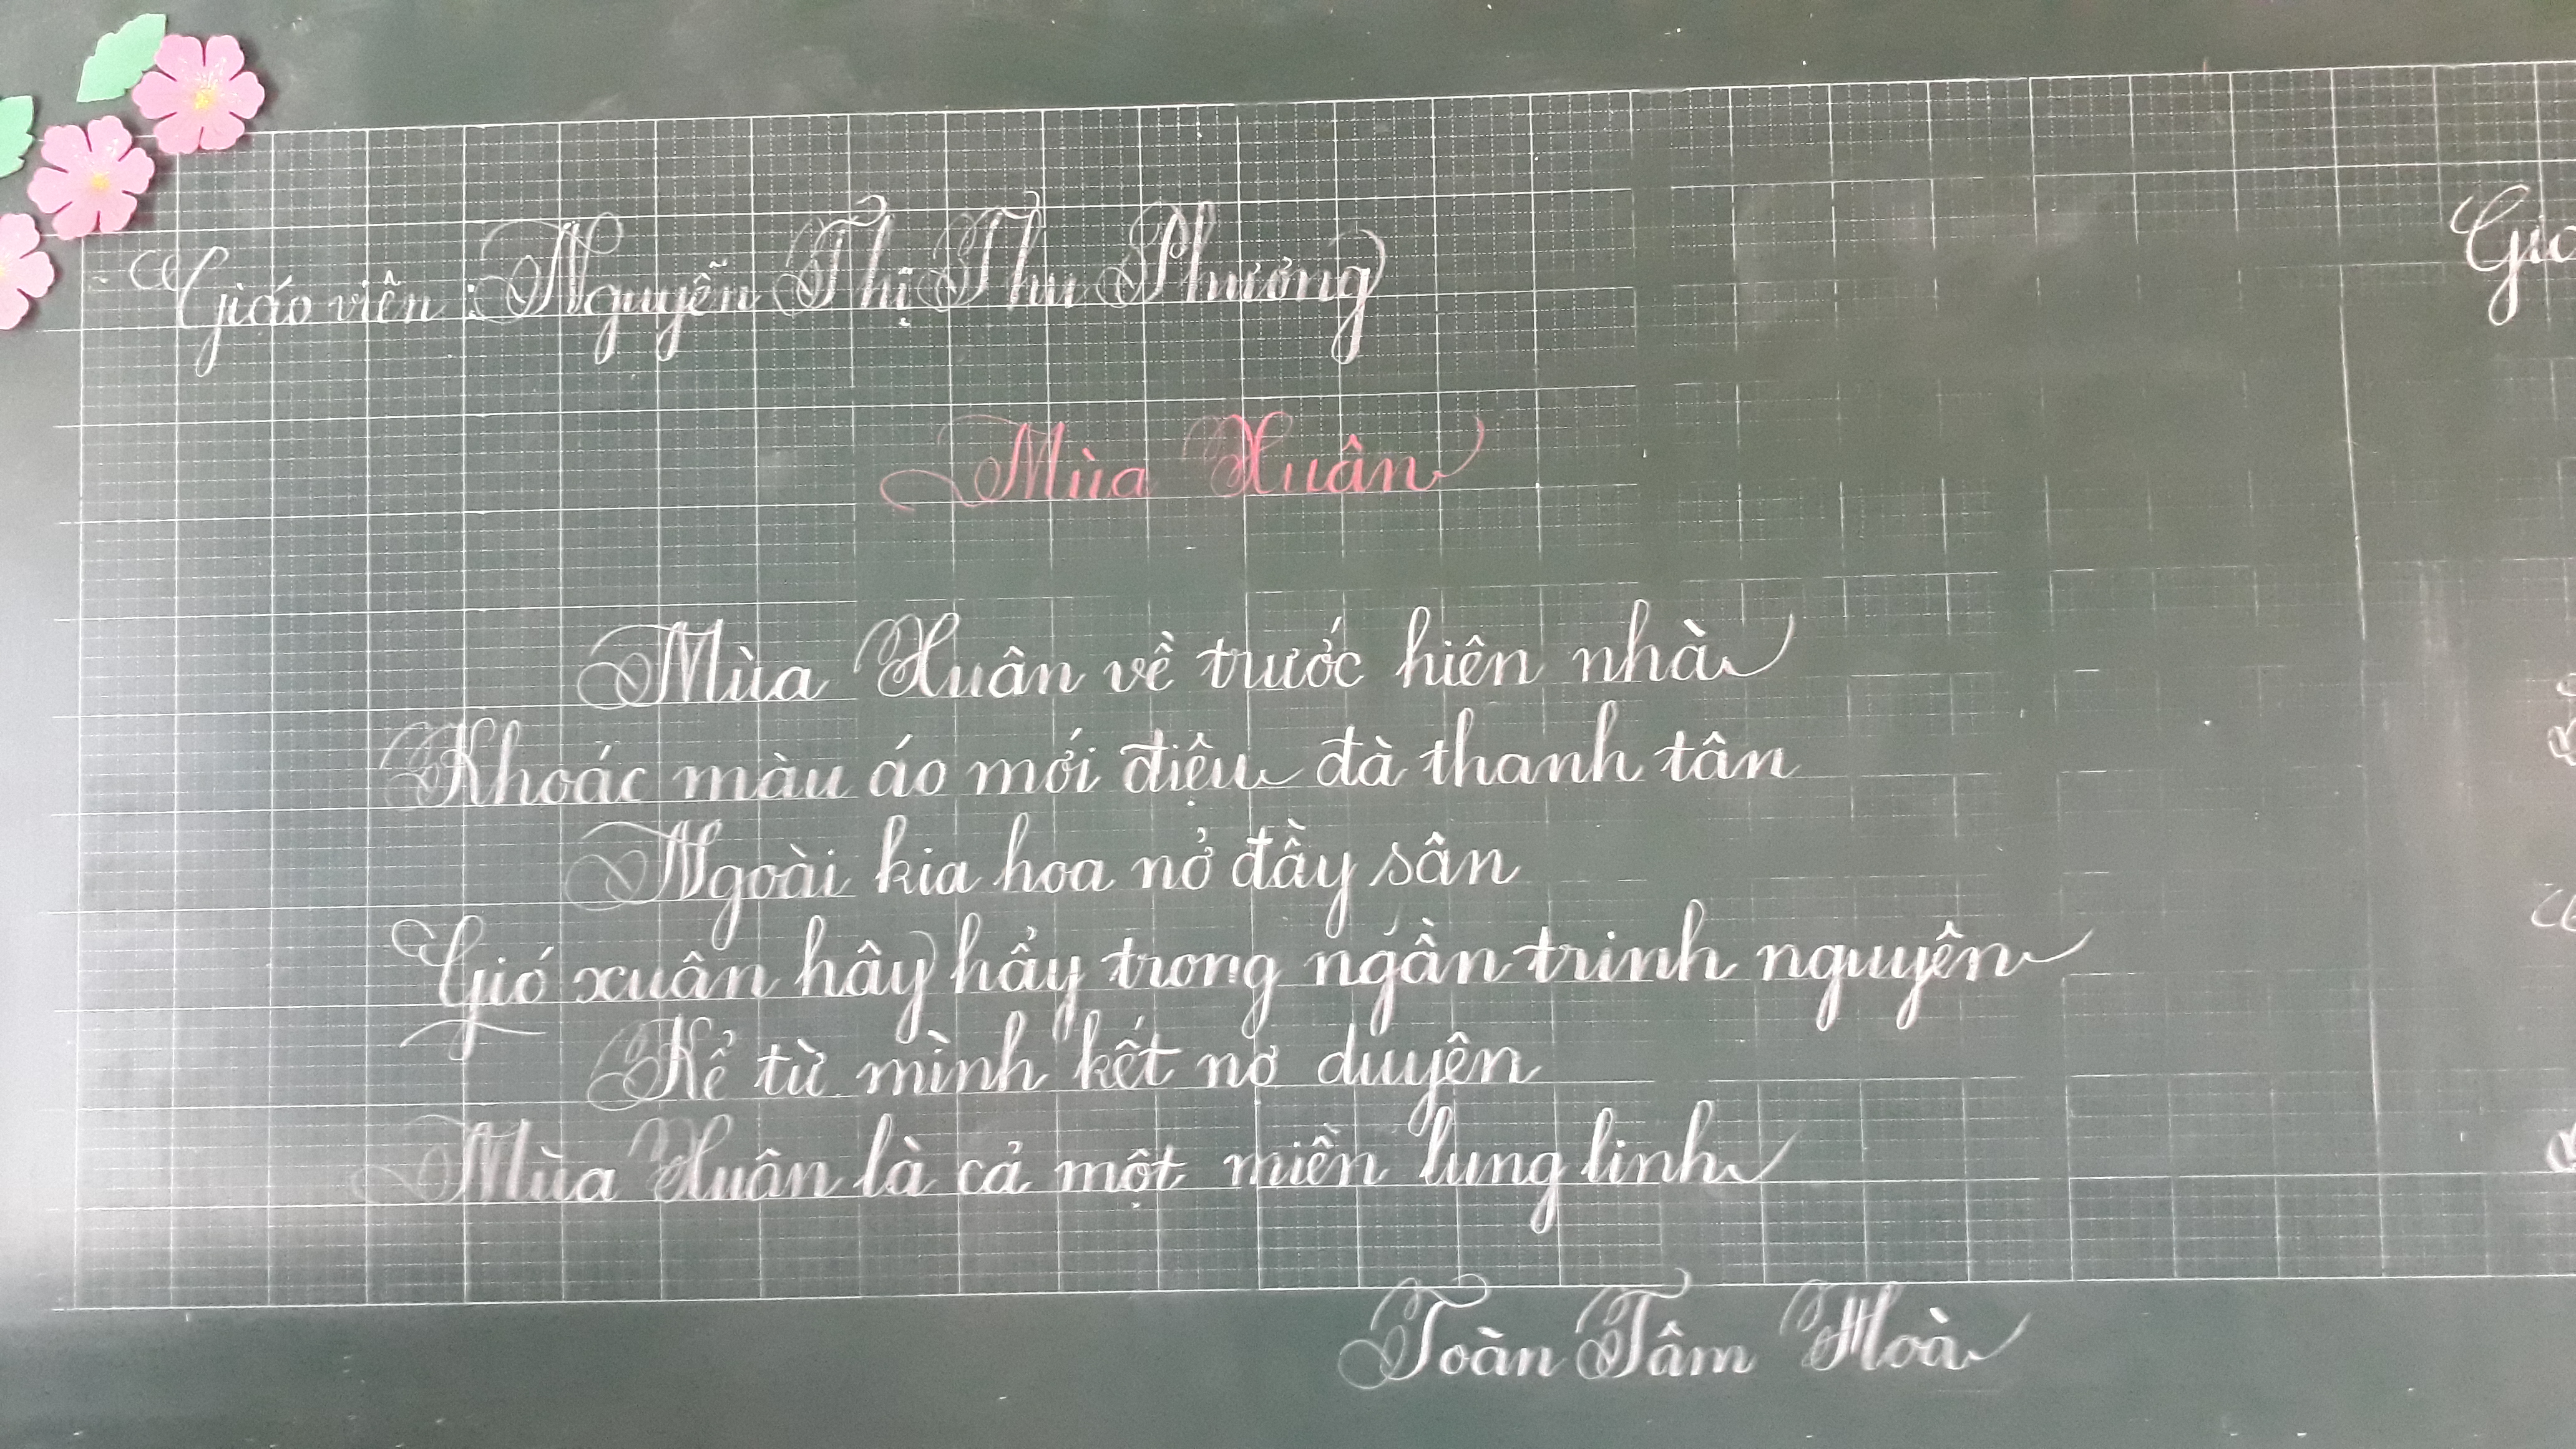 Giáo viên : Nguyễn Thị Thu Phương
Mùa Xuân
Mùa Xuân về trước hiên nhà
Khoác màu áo mới điệu đà thanh tân
Ngoài kia hoa nở đầy sân
Gió xuân hây hẩy trong ngần trinh nguyên
Kể từ mình kết nợ duyên
Mùa Xuân là cả một miền lung linh
Toàn Tâm Hoà